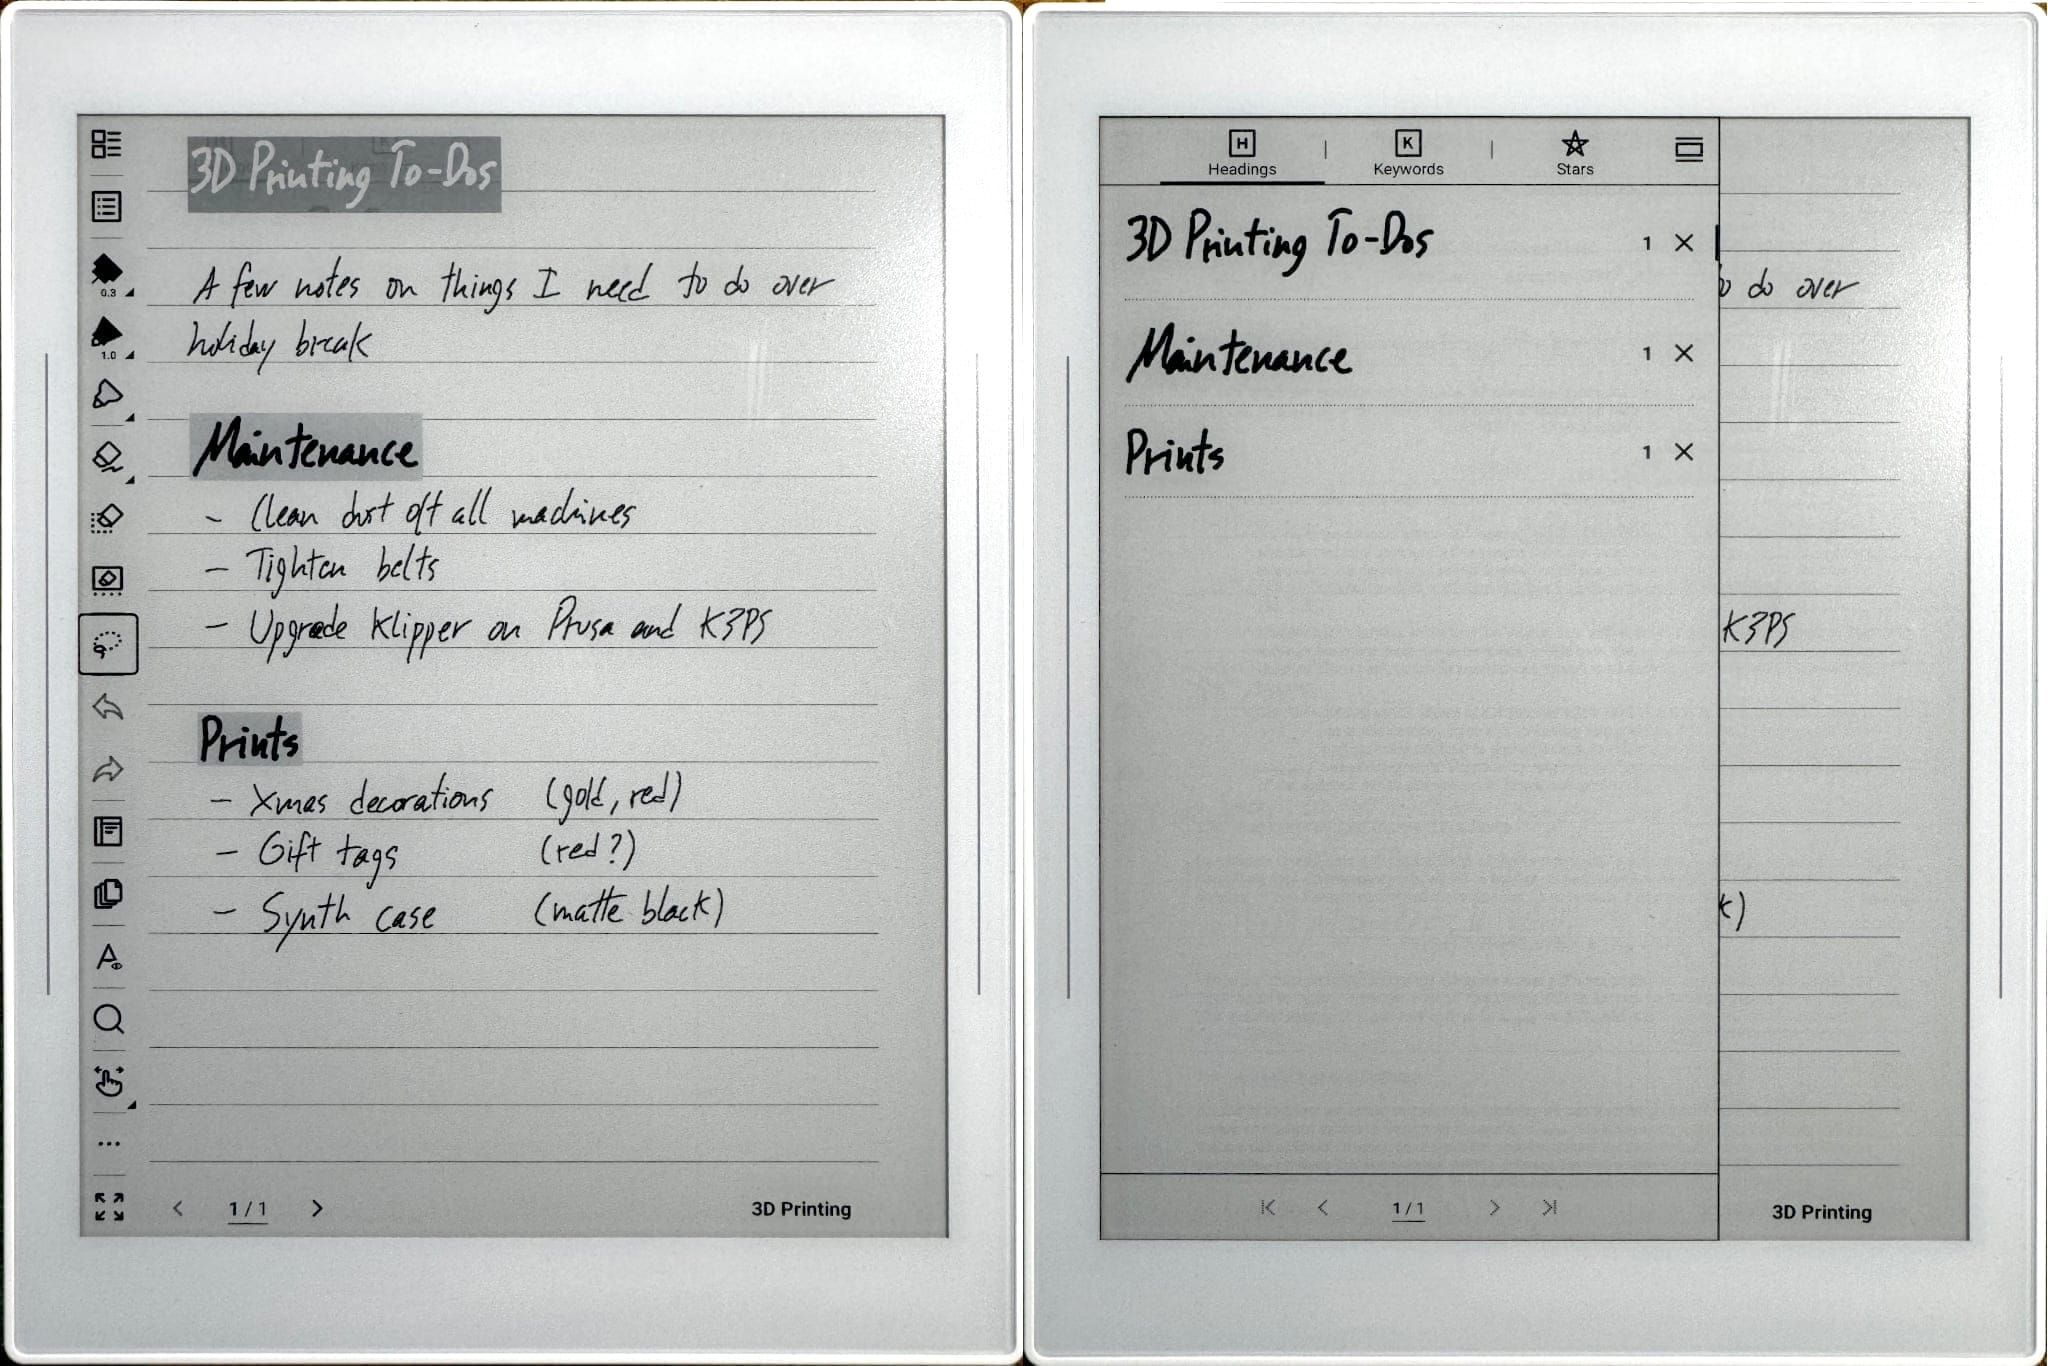 3D Printing To-Dos
A few notes on things I need to do over
holiday break
Maintenance
- Clean dust off all machines
- Tighten belts
- Upgrade Klipper on Prusa and K3PS
Prints
- Xmas decorations (gold, red)
- Gift tags (red?)
- Synth case (matte black)
0.3
1.0
1/1
3D Printing
H
K
Headings
Keywords
Stars
3D Printing To-Dos 1
Maintenance 1
Prints 1
do over
K3PS
k)
1/1
3D Printing